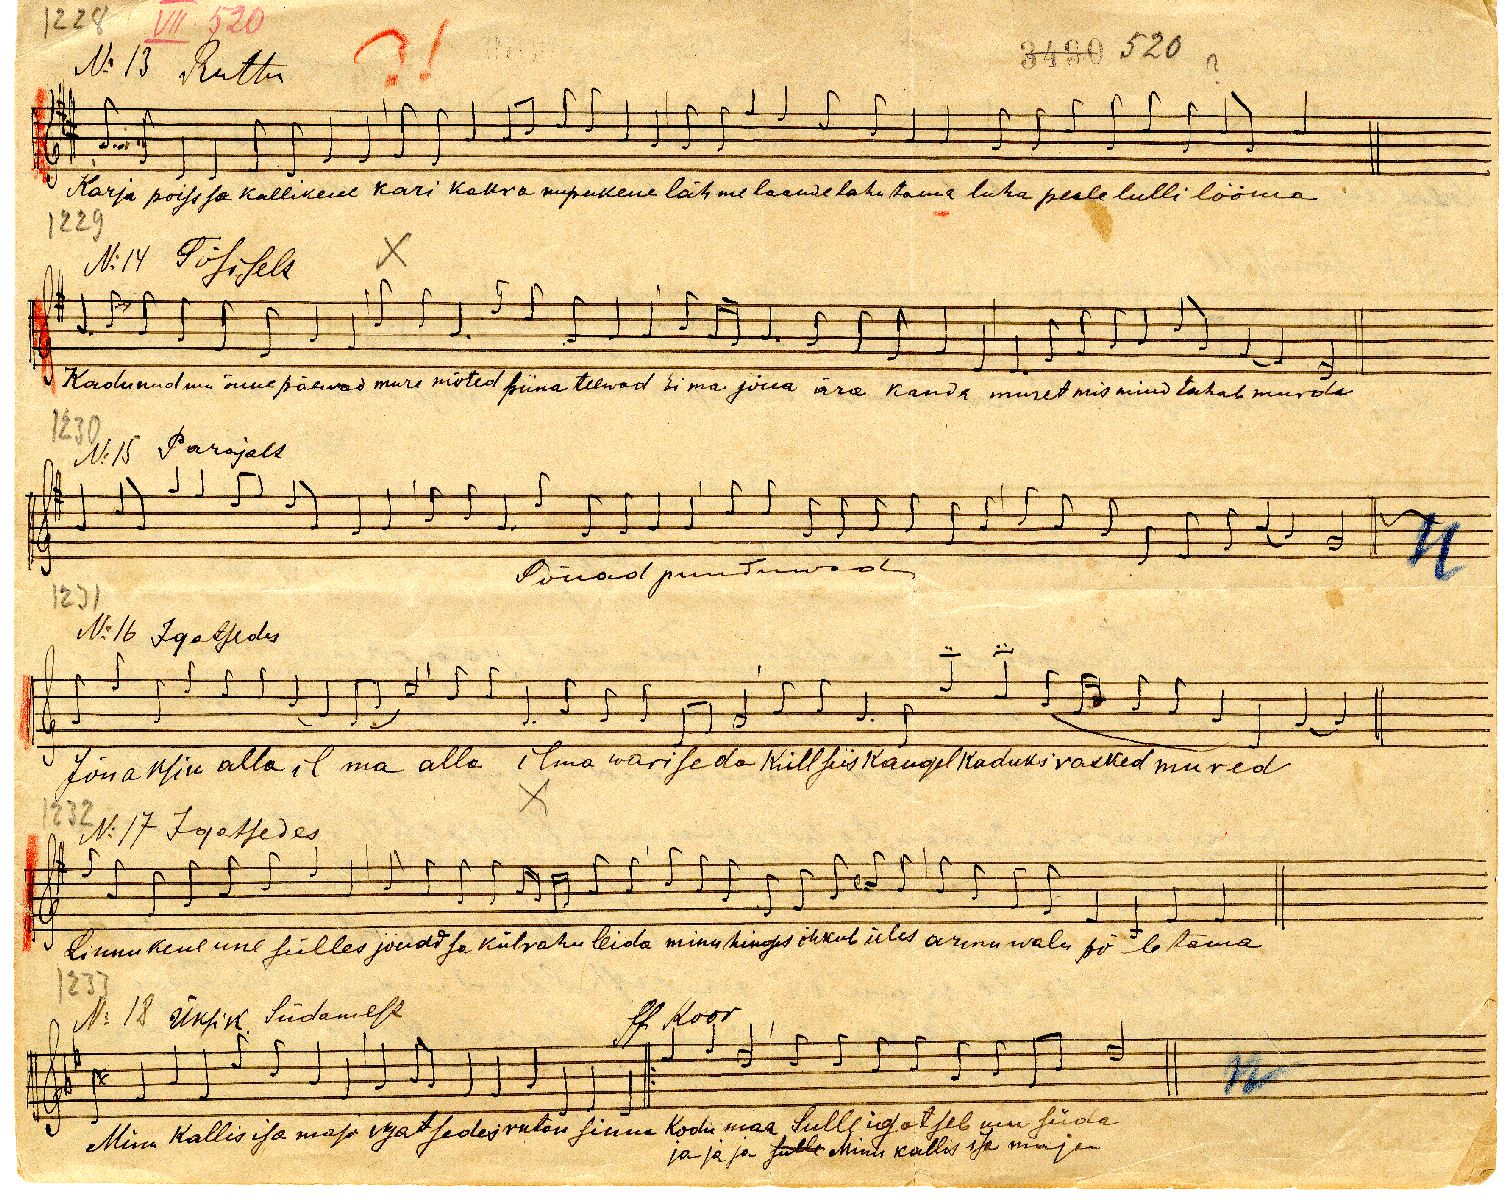 1228 VII 520
3480 520 ?
№ 13 Ruttu ?!
Karja poissa kallikene kari kakra nupukene lähme laande lahutama luha peale lulli lööma
1229
№ 14 Tõsiselt X
Kadunud mu õnne päewad mure mõted piina teewad ei ma jõua ära kanda muret mis mind tahab murda
1230
№ 15 Parajalt
Tõuad puuduwad
n
1231
№ 16 Igatsedes
Jõuaksin alla il ma alla ilma wariseda Küll siis Kaugel Kaduksi rasked mured
X
1232
№ 17 Igatsedes
Linnukene une sülles jõuad sa külrahu leida minu hinges ihkub üles armu walu põletama
1233
№ 18 Üksik. Südamest ff Koor
Minu Kallis isa maja igatsedes rutan sinna Kodu maa Sulle igatseb mu süda
ja ja ja sulle Minu kallis isa maja
n